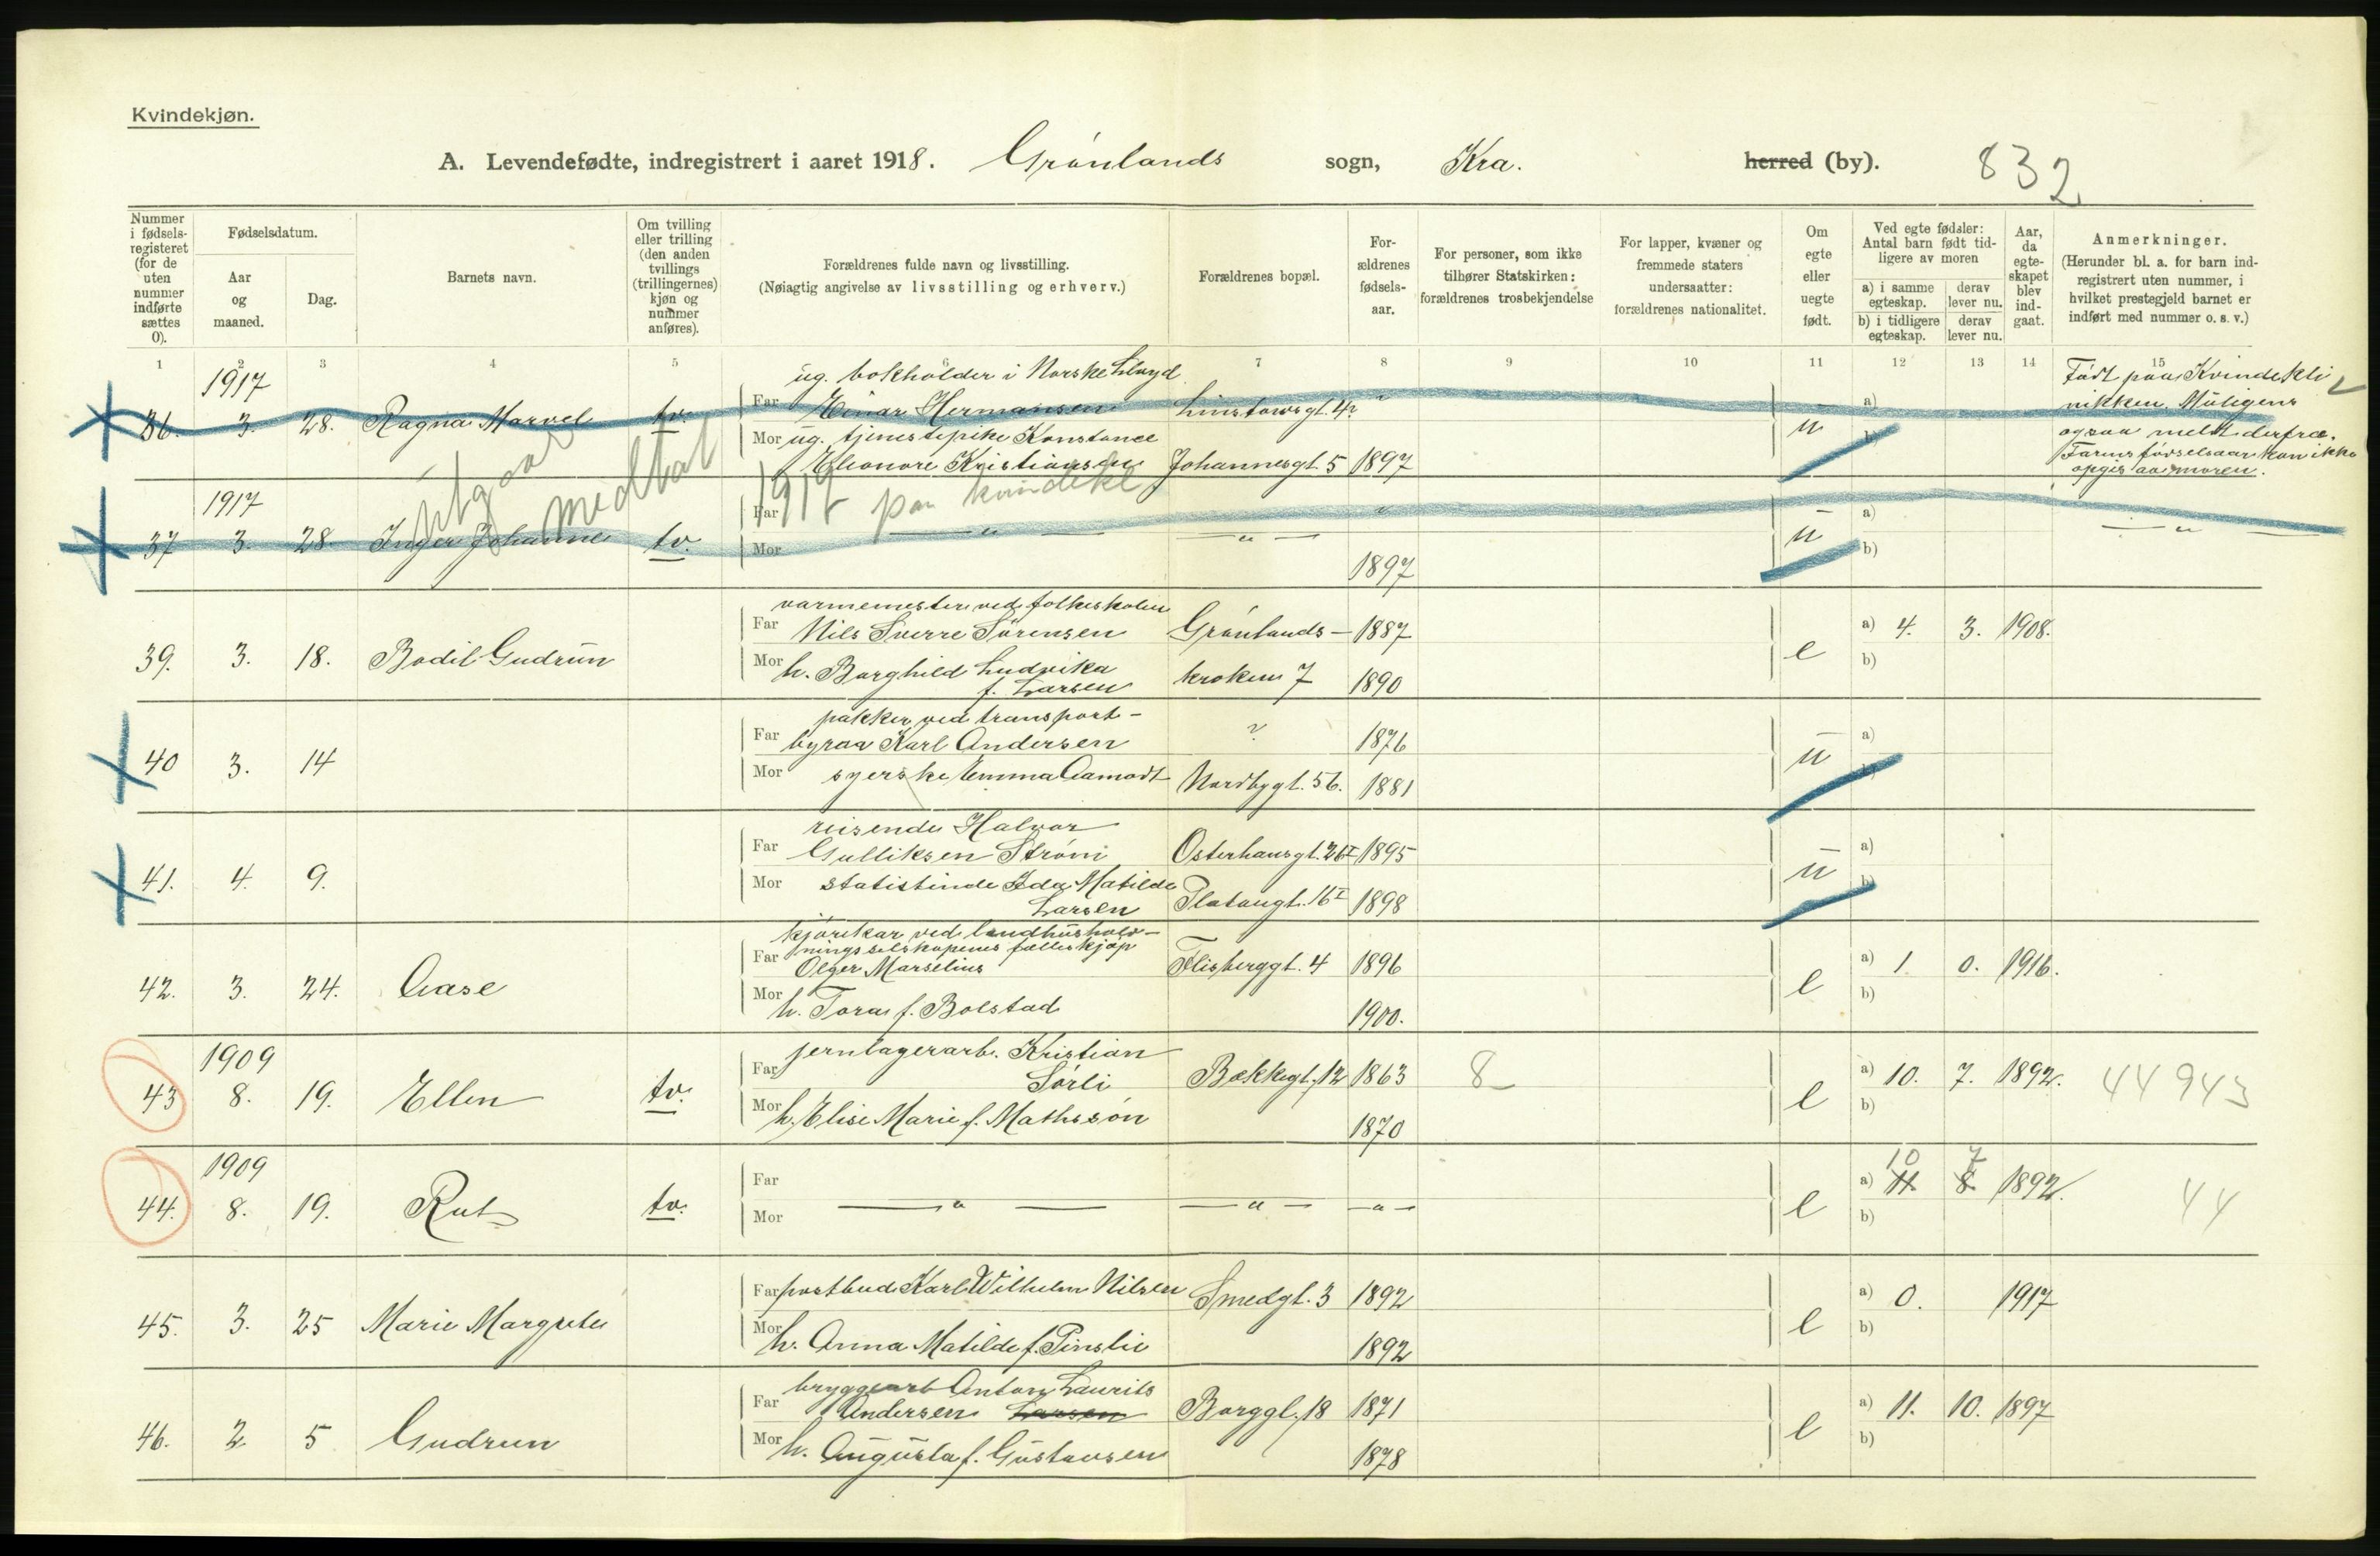 Kvindekjøn.
A. Levendefødte, indregistrert i aaret 1918. Grønlands sogn, Kra. herred (by). 832
Nummer i fødsels-registeret (for de uten nummer indførte sættes 0).
Fødselsdatum.
Aar og maaned.
Dag.
Barnets navn.
Om tvilling eller trilling (den anden tvillings (trillingernes) kjøn og nummer anføres).
Forældrenes fulde navn og livsstilling.
(Nøiagtig angivelse av livsstilling og erhverv.)
Forældrenes bopæl.
For-ældrenes fødsels-aar.
For personer, som ikke tilhører Statskirken: forældrenes trosbekjendelse
For lapper, kvæner og fremmede staters undersaatter: forældrenes nationalitet.
Om egte eller uegte født.
Ved egte fødsler: Antal barn født tid-ligere av moren
a) i samme egteskap. derav lever nu.
b) i tidligere egteskap. derav lever nu.
Aar, da egte-skapet blev ind-gaat.
Anmerkninger.
(Herunder bl. a. for barn ind-registrert uten nummer, i hvilket prestegjeld barnet er indført med nummer o. s. v.)
1 2 3 4 5 6 7 8 9 10 11 12 13 14 15
1917 ug. bokholder i Norske Lloyd Født paa Kvindekli
36. 3. 28. Ragna Marvel tv. Far Einar Hermansen Linstowsgt. 4? " a) nikken. Muligens
Mor ug. tjenestepike Konstance u b) ogsaa meldt derfra.
Eleonore Kristiansen Johannesgt. 5 1897 Farens fødselsaar kan ikke
opgis av moren.
utgaar medtat 1917 paa kvindekl
1917 Far " a)
37 3. 28. Inger Johanne tv. Mor — " — — " — u b) — " —
1897
varmemester ved folkeskolen
Far Nils Sverre Sørensen Grønlands- 1887 a) 4. 3. 1908.
39. 3. 18. Bodil Gudrun Mor h. Borghild Ludvika kroken 7 1890 e b)
f. Larsen
pakker ved transport-
Far byraa Karl Andersen ? 1876 a)
40 3. 14 Mor syerske Emma Aamodt Nordbygt. 56. 1881 u b)
reisende Halvor
Far Gulliksen Strøm Osterhausgt. 26 I 1895 a)
41. 4. 9. Mor statistinde Ida Matilde u b)
Larsen Platougt. 16 I 1898
kjørekar ved landhushold-
ningsselskapenes fælleskjøp
Far Olger Marselius Flisberggt. 4 1896 a) 1. 0. 1916.
42. 3. 24. Aase Mor h. Tora f. Bolstad 1900. e b)
1909 jernlagerarb. Kristian
Far Sørli Bækkegt. 12 1863 8 a) 10. 7. 1892. 44943
43 8. 19. Ellen tv. Mor h. Elise Marie f. Mathsson 1870 e b)
1909 10 7
Far a) 11. 8. 1892. 44
44. 8. 19. Rut tv. Mor — " — — " — — " — e b)
Far postbud Karl Wilhelm Nilsen Smedgt. 3 1892 a) 0. 1917
45. 3. 25 Marie Margrete Mor h. Anna Matilde f. Pinslie 1892 e b)
bryggearb Anton Laurits
Far Andersen Larsen Borggt. 18 1871 a) 11. 10. 1897
46. 2 5 Gudrun Mor h. Augusta f. Gustavsen 1878 e b)